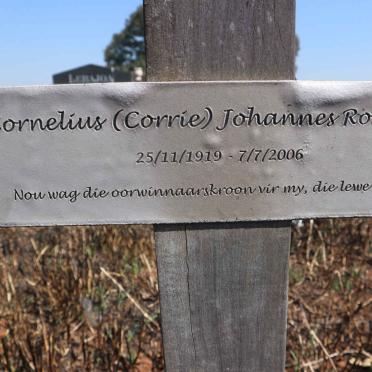 LEBAJOA
ornelius (Corrie) Johannes Ro
25/11/1919 - 7/7/2006
Nou wag die oorwinnaarskroon vir my, die lewe